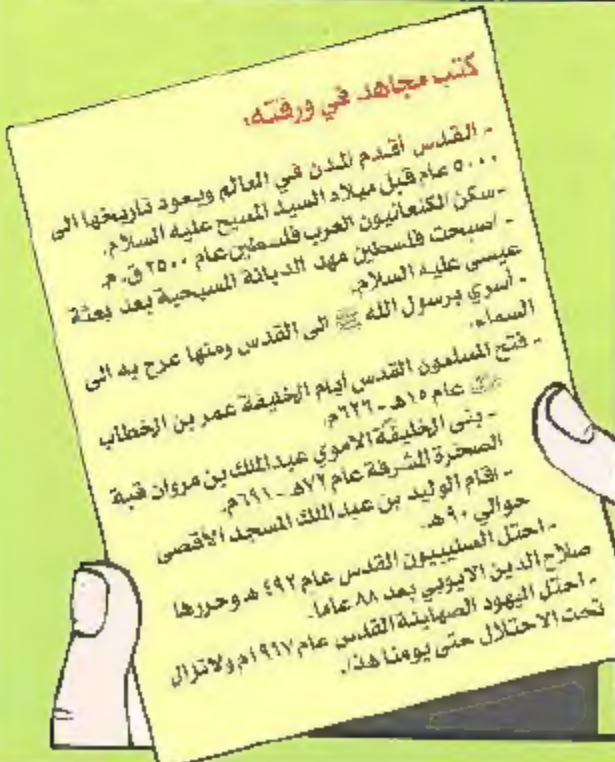 كتب مجاهد في ورقته:
- القدس أقدم المدن في العالم ويعود تاريخها الى
٥٠٠٠ عام قبل ميلاد السيد المسيح عليه السلام.
- سكن الكنعانيون العرب فلسطين عام ٢٥٠٠ ق.م.
- اصبحت فلسطين مهد الديانة المسيحية بعد بعثة
عيسى عليه السلام.
- أسري برسول الله ﷺ الى القدس ومنها عرج به الى
السماء.
- فتح المسلمون القدس أيام الخليفة عمر بن الخطاب
عام ١٥هـ - ٦٣٦م.
- بنى الخليفة الاموي عبدالملك بن مروان قبة
الصخرة المشرفة عام ٧٢هـ - ٦٩١م.
- اقام الوليد بن عبدالملك المسجد الأقصى
حوالي ٩٠هـ.
- احتل الصليبيون القدس عام ٤٩٢ هـ وحررها
صلاح الدين الايوبي بعد ٨٨ عاما.
- احتل اليهود الصهاينة القدس عام ١٩٦٧م ولاتزال
تحت الاحتلال حتى يومنا هذا.